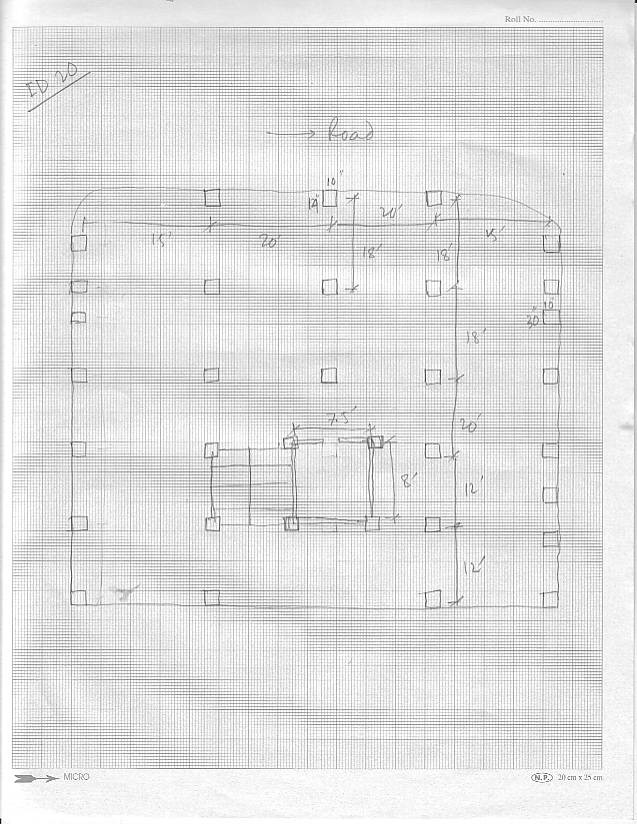 Roll No. ........................
ID 20
→ Road
10"
14"
20'
15'
20'
18'
18'
15'
10"
30"
18'
7.5'
20'
8'
12'
12'
MICRO
N.P. 20 cm x 25 cm